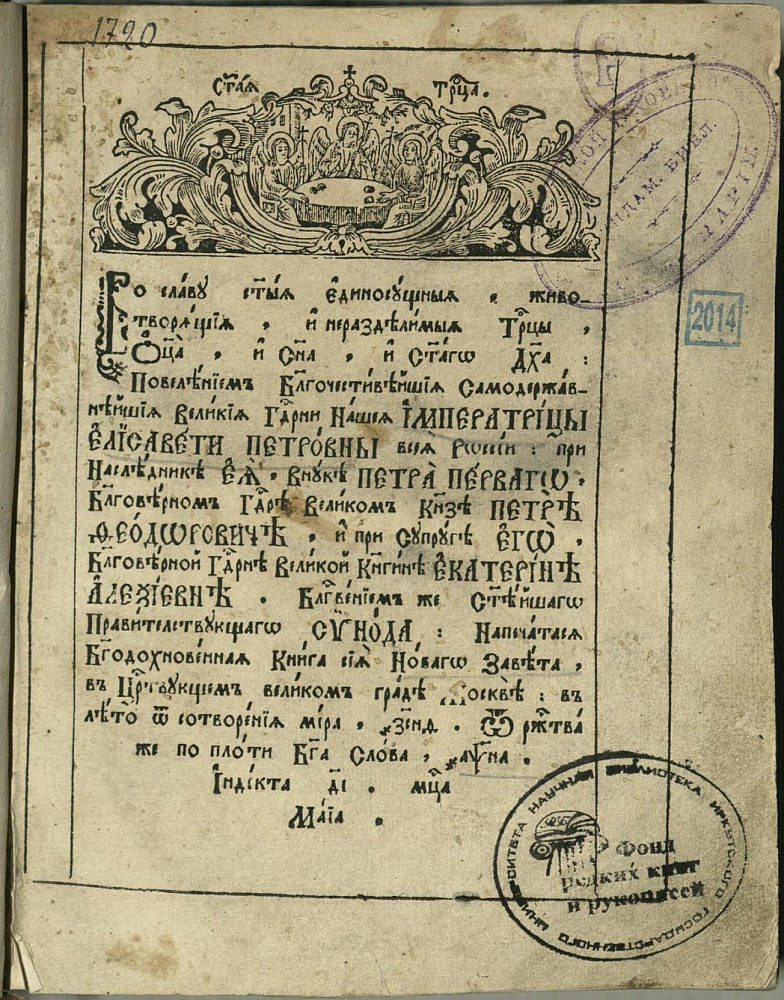 1720
Ст҃ая Трⷪ҇ца.
Во славу ст҃ыѧ є҆диносу́щныѧ , живо-
творѧ́щїѧ , и҆ нераздѣли́мыѧ Трⷪ҇цы ,
Ѻ҆ц҃а̀ , и҆ Сн҃а , и҆ Ст҃а́гѡ Дх҃а :
Повелѣ́нїемъ Бл҃гочести́вѣйшїѧ Самодержа́в-
нѣйшїѧ Вели́кїѧ Гдⷭ҇рни На́шеѧ І҆МПЕРАТРИ́ЦЫ
Е҆ЛІСАВЕ́ТИ ПЕТРО́ВНЫ всеѧ̀ Рѡссі́и : при
Наслѣ́дникѣ Е҆Ѧ̀ , Вну́кѣ ПЕТРА̀ ПЕ́РВАГѠ ,
Бл҃говѣ́рномъ Гдⷭ҇рѣ Вели́комъ Кн҃зѣ ПЕТРѢ̀
Ѳ҆ЕО́ДѠРОВИЧѢ , и҆ при Супру́гѣ Е҆ГѠ̀ ,
Бл҃говѣ́рной Гдⷭ҇рнѣ Вели́кой Кн҃ги́нѣ Е҆КАТЕРІ́НѢ
А҆ЛЕѮІ́ЕВНѢ . Бл҃гве́нїемъ же Ст҃ѣ́йшагѡ
Прави́телствующагѡ СѴНО́ДА : Напеча́тасѧ
Бг҃одохнове́ннаѧ Кни́га сїѧ̀ Но́вагѡ Завѣ́та ,
въ Црⷭ҇твующемъ вели́комъ гра́дѣ Москвѣ̀ : въ
лѣ́то ѿ сотворе́нїѧ мі́ра , ҂зс҃нд . Ѿ ржⷭ҇тва̀
же по пло́ти Бг҃а Сло́ва , ҂аѱ҃на .
І҆ндї́кта д҃і . мцⷭ҇а
Ма́їа .
2014
ИДАМ. БИБЛ.
НАУЧНАЯ БИБЛИОТЕКА ИРКУТСКОГО ГОСУДАРСТВЕННОГО УНИВЕРСИТЕТА
Фонд
редких книг
и рукописей